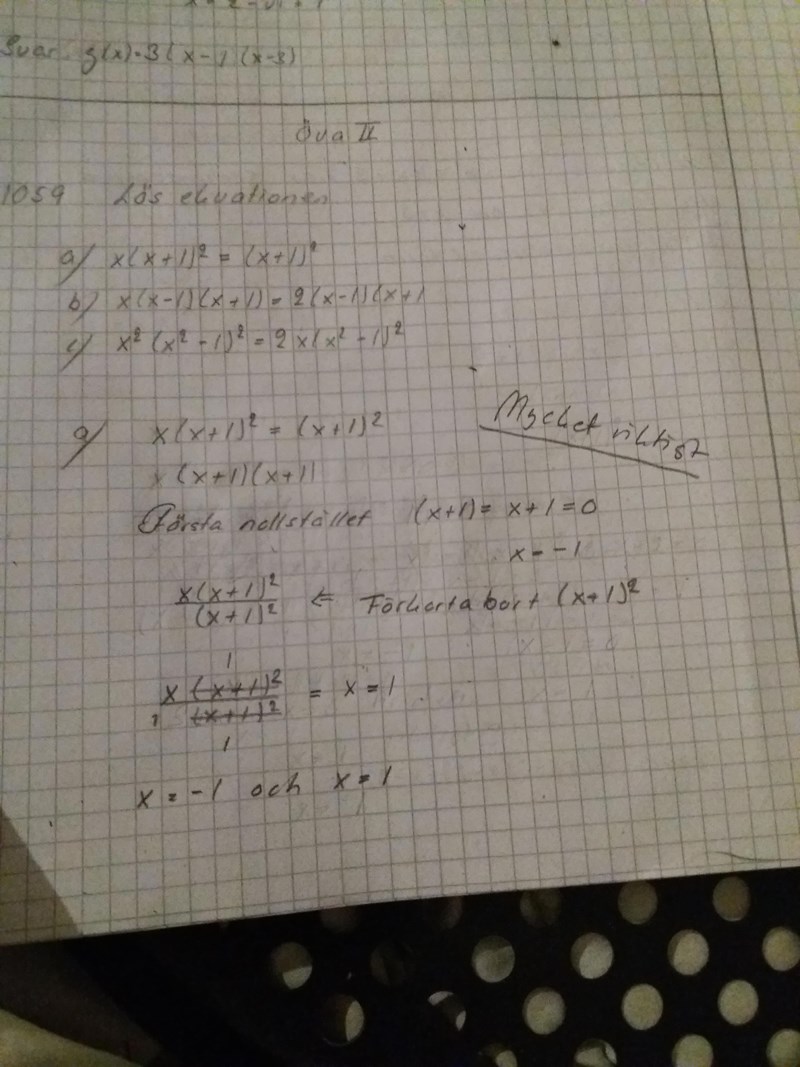 Svar g(x)=3(x-1)(x-3)
Öva II
1059 Lös ekvationen
a) x(x+1)² = (x+1)²
b) x(x-1)(x+1) = 2(x-1)(x+1
c) x²(x²-1)² = 2x(x²-1)²
a) x(x+1)² = (x+1)²
Mycket viktigt
x(x+1)(x+1)
Första nollstället (x+1)= x+1=0
x=-1
x(x+1)²
(x+1)² ⇐ Förkorta bort (x+1)²
1
x (x+1)² = x=1
1 (x+1)²
1
x = -1 och x = 1